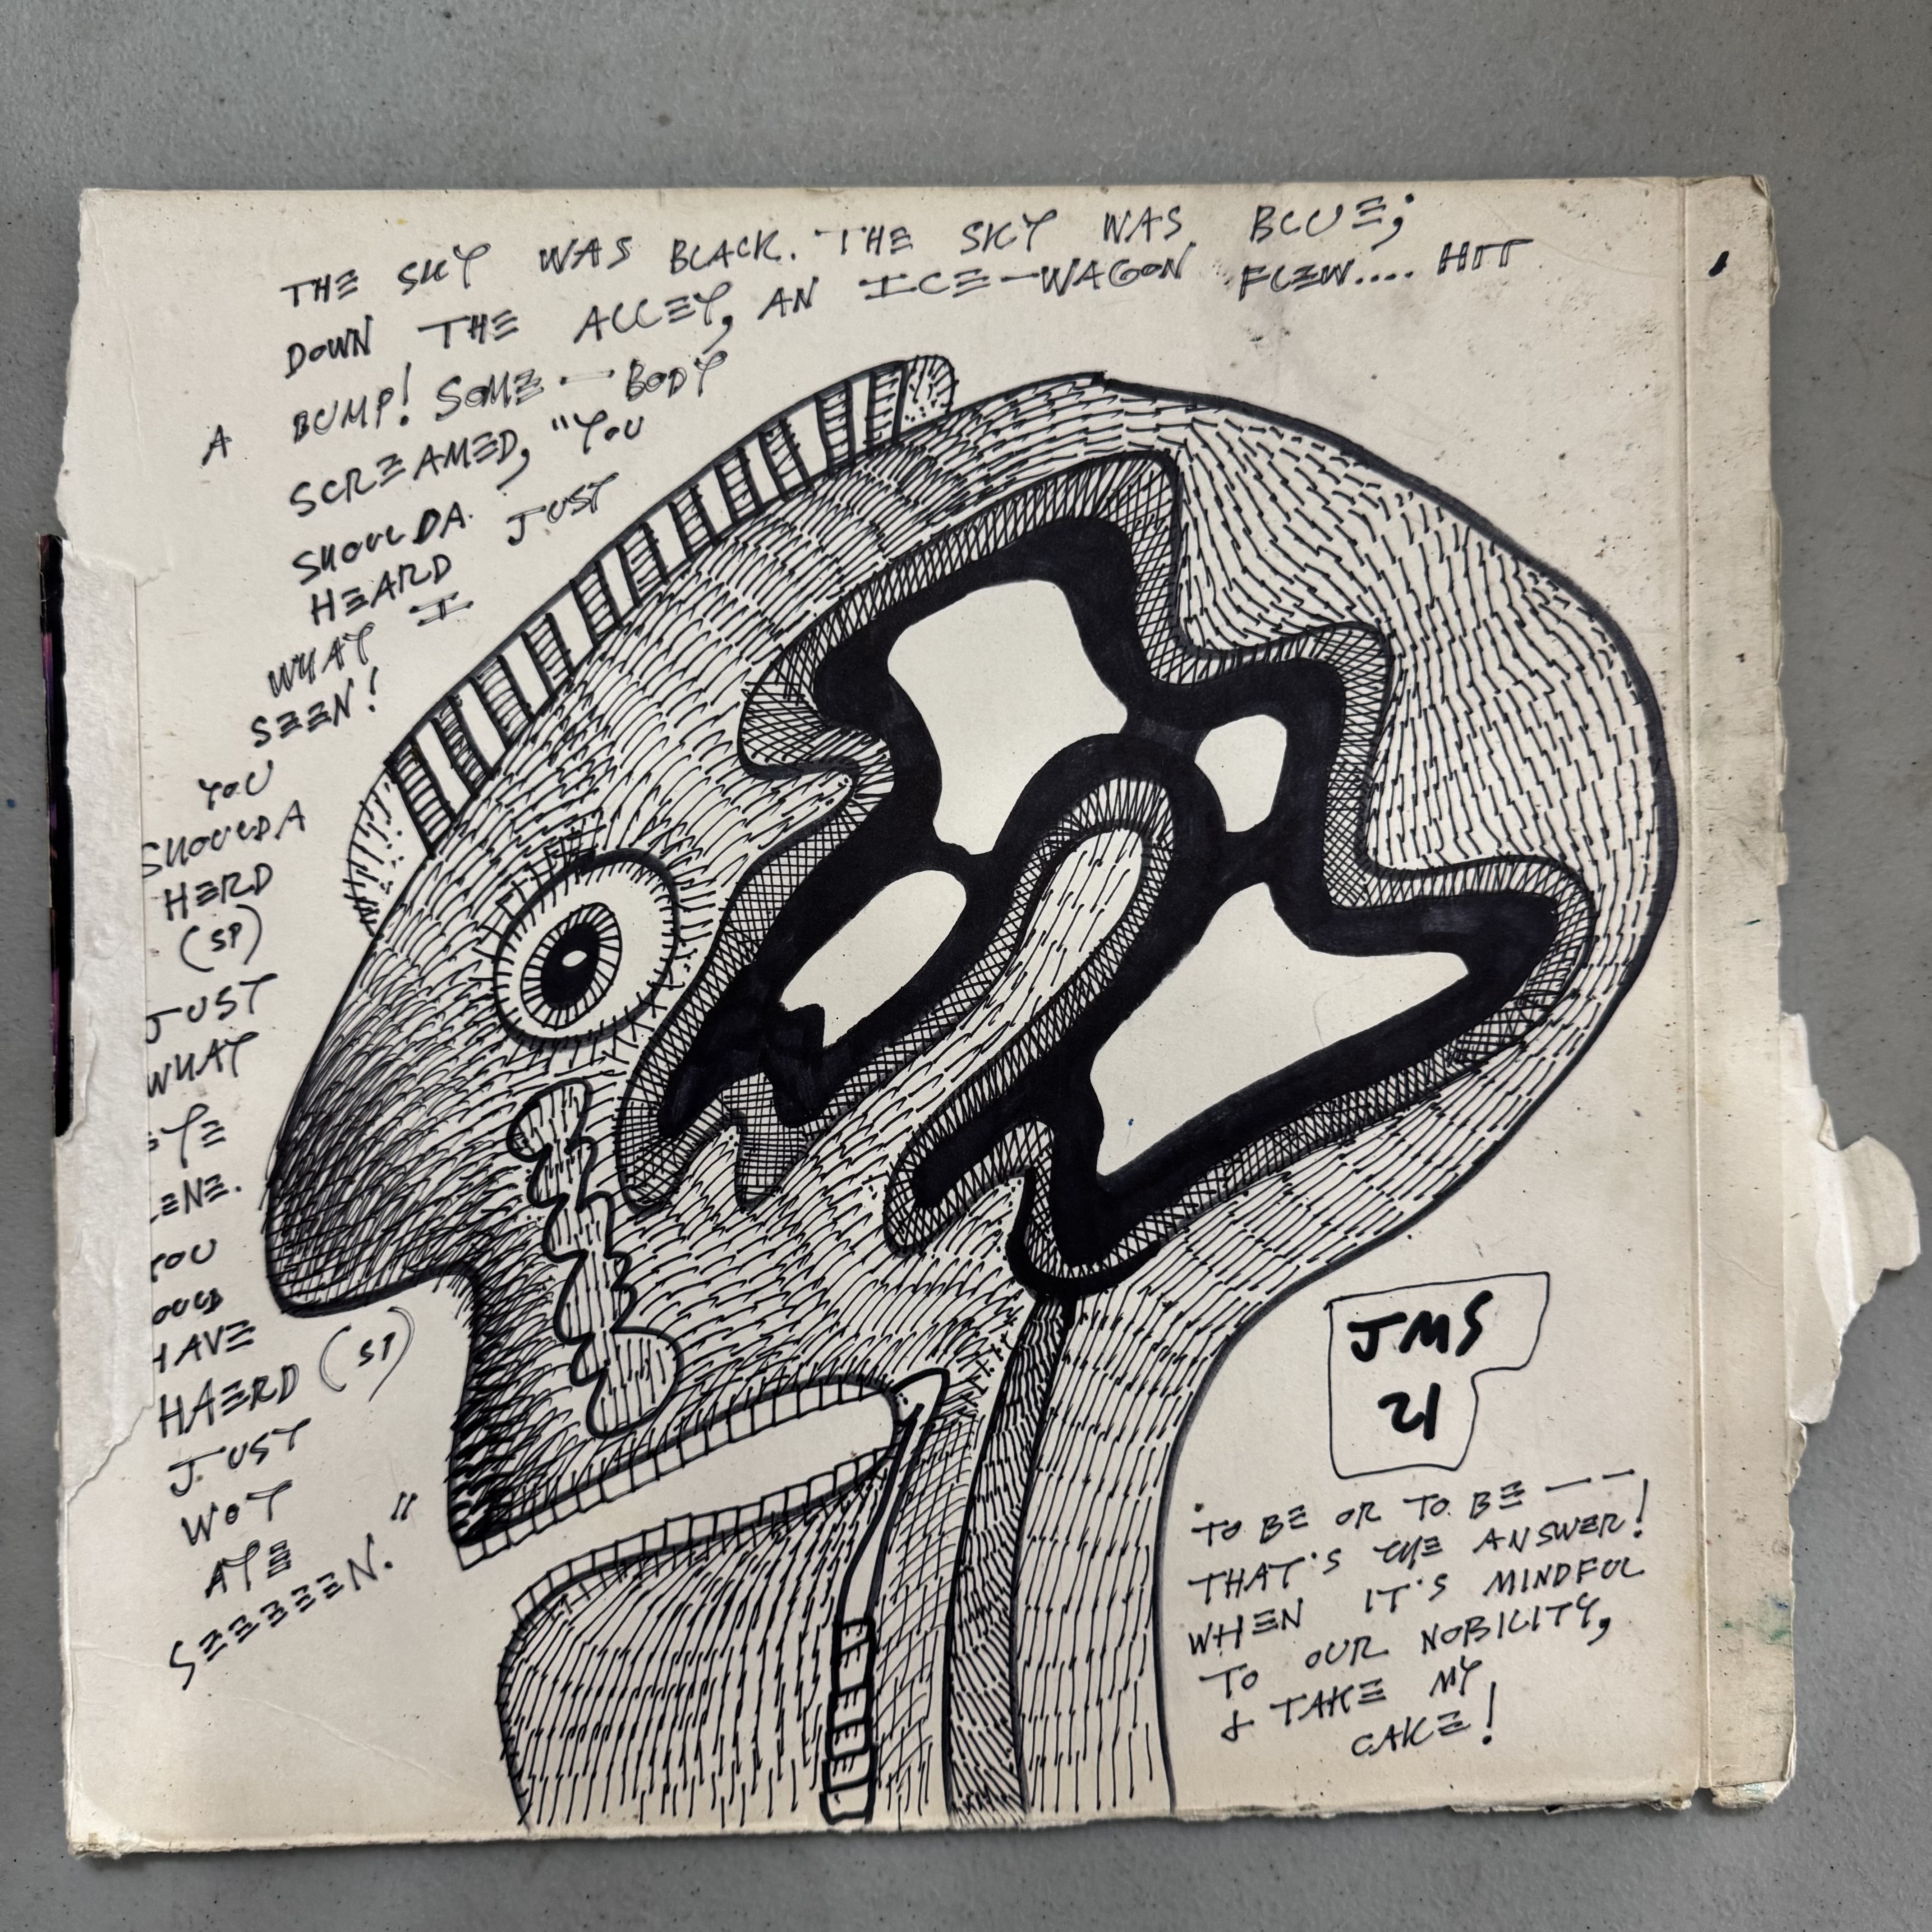 THE SKY WAS BLACK. THE SKY WAS BLUE;
DOWN THE ALLEY, AN ICE-WAGON FLEW.... HIT
A BUMP! SOME-BODY
SCREAMED, "YOU
SHOULDA
HEARD JUST
WHAT I
SEEN!
YOU
SHOULDA
HERD
(SP)
JUST
WHAT
YOU
HAVE
HAERD (SP)
JUST
WOT
AYE
SEEEEEN."
JMS
21
TO BE OR TO BE——
THAT'S THE ANSWER!
WHEN IT'S MINDFUL
TO OUR NOBILITY,
& TAKE MY
CAKE!